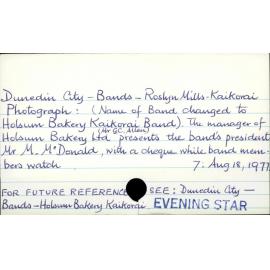 Dunedin City - Bands - Roslyn Mills-Kaikorai
Photograph: (Name of Band changed to
Holsum Bakery Kaikorai Band). The manager of
Holsum Bakery Ltd (Mr G.C. Allen) presents the band's president
Mr M. McDonald, with a cheque while band mem-
bers watch 7: Aug 18, 1977
FOR FUTURE REFERENCE SEE: Dunedin City -
Bands - Holsum Bakery Kaikorai EVENING STAR